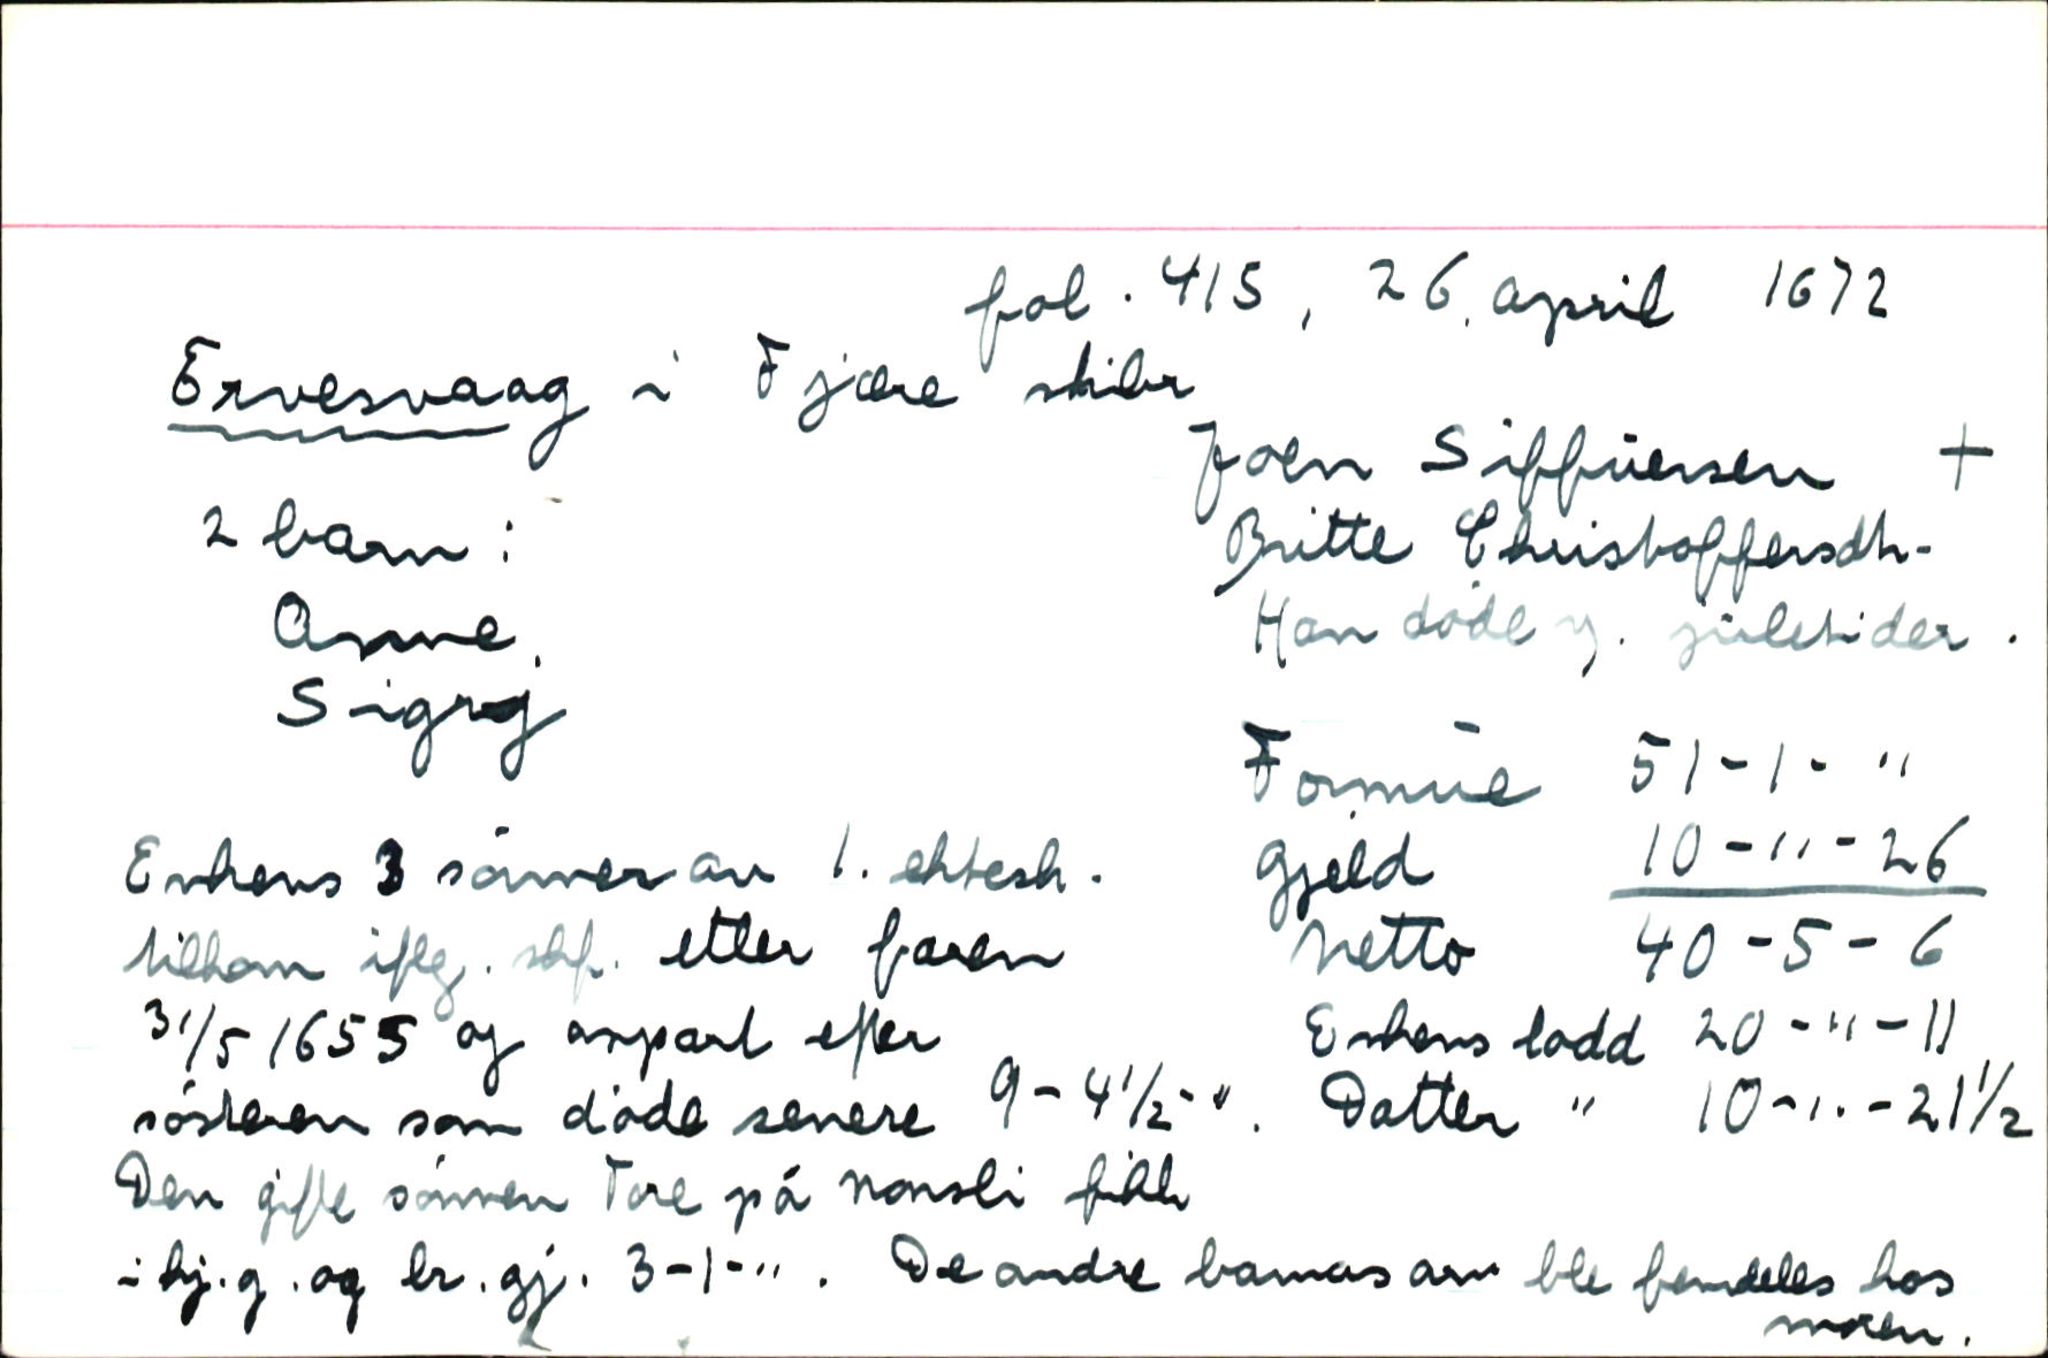 fol. 415, 26. april 1672
Ervesvaag i Fjære skibr
Joen Siffüersen +
2 barn:
Britte Christoffersdtr.
Anne,
Han døde v. juletider.
Sigrj
Formüe 51-1-"
Enkens 3 sønner av 1. ektesk.
Gjeld 10-"-26
tilkom iflg. skf. etter faren
Netto 40-5-6
31/5 1655 og anpart efter
Enkens lodd 20-"-11
søsteren som døde senere 9-4 1/2-".
Datter " 10-"-21 1/2
Den gifte sønnen Tore på Nonsli fikk
i hj.g. og br.gj. 3-1-". De andre barnas arv ble fremdeles hos
moren.